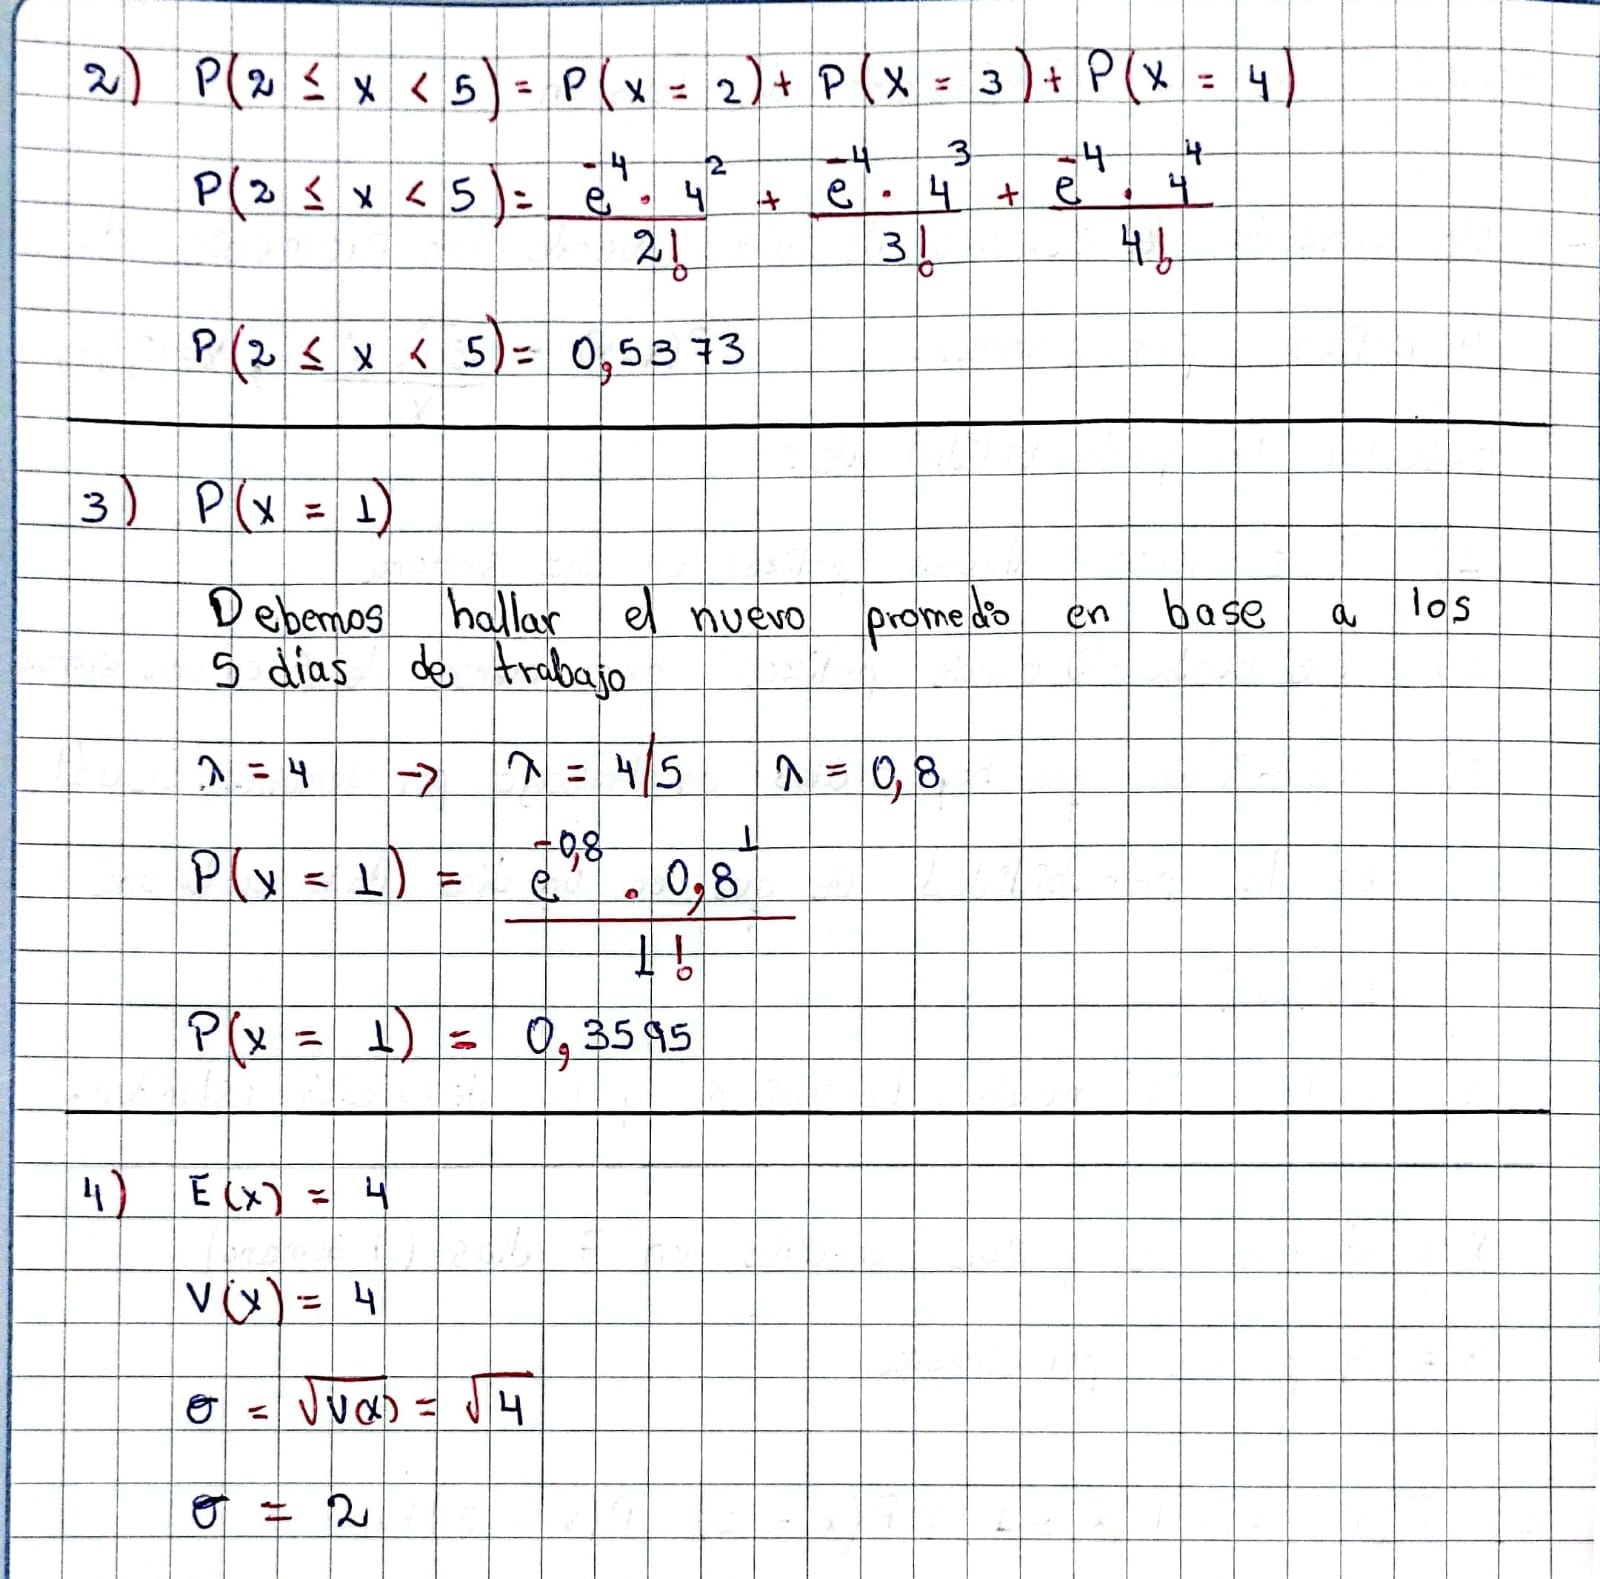 2) P(2 ≤ x < 5) = P(x = 2) + P(x = 3) + P(x = 4)
P(2 ≤ x < 5) = e^-4 . 4^2 / 2! + e^-4 . 4^3 / 3! + e^-4 . 4^4 / 4!
P(2 ≤ x < 5) = 0,5373
3) P(x = 1)
Debemos hallar el nuevo promedio en base a los
5 días de trabajo
λ = 4 → λ = 4/5 λ = 0,8
P(x = 1) = e^-0,8 . 0,8^1 / 1!
P(x = 1) = 0,3595
4) E(x) = 4
V(x) = 4
σ = √V(x) = √4
σ = 2